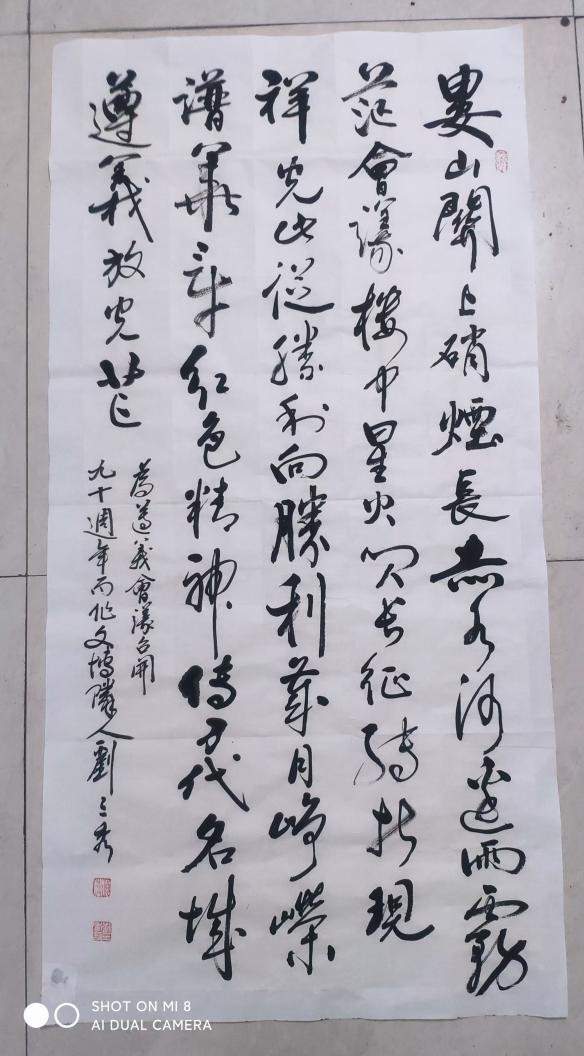 婁山關上硝煙長赤水河邊雨霧
茫會議樓中星火閃長征轉折現
祥光此從勝利向勝利歲月崢嶸
譜華章紅色精神傳万代名城
遵義放光芒
為遵義會議召開
九十週年而作文博隣人劉
SHOT ON MI 8
AI DUAL CAMERA